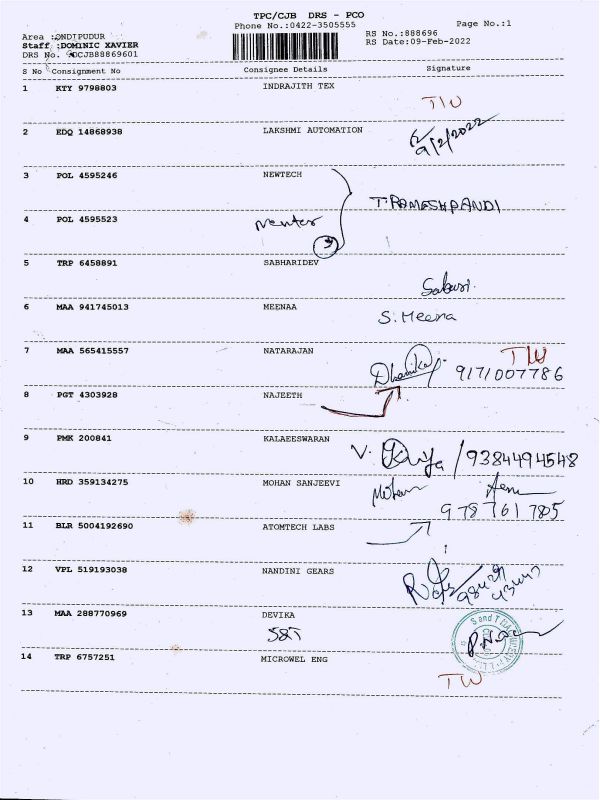 TPC/CJB DRS - PCO
Phone No.:0422-3505555
Page No.:1
Area :ONDIPUDUR
RS No.:888696
Staff :DOMINIC XAVIER
RS Date:09-Feb-2022
DRS No. CJB88869601
S No Consignment No Consignee Details Signature
1 KTY 9798803 INDRAJITH TEX
TW
2 EDQ 14868938 LAKSHMI AUTOMATION
9/2/2022
3 POL 4595246 NEWTECH
T.RAMESHPANDI
4 POL 4595523
3
5 TRP 6458891 SABHARIDEV
Sabari.
6 MAA 941745013 MEENAA
S. Meena
7 MAA 565415557 NATARAJAN
TW
9171007786
8 PGT 4303928 NAJEETH
9 PMK 200841 KALAEESWARAN
V. /9384494548
10 HRD 359134275 MOHAN SANJEEVI
Mohan
978761785
11 BLR 5004192690 ATOMTECH LABS
12 VPL 519193038 NANDINI GEARS
13 MAA 288770969 DEVIKA
S&T
S and T
14 TRP 6757251 MICROWEL ENG
TW